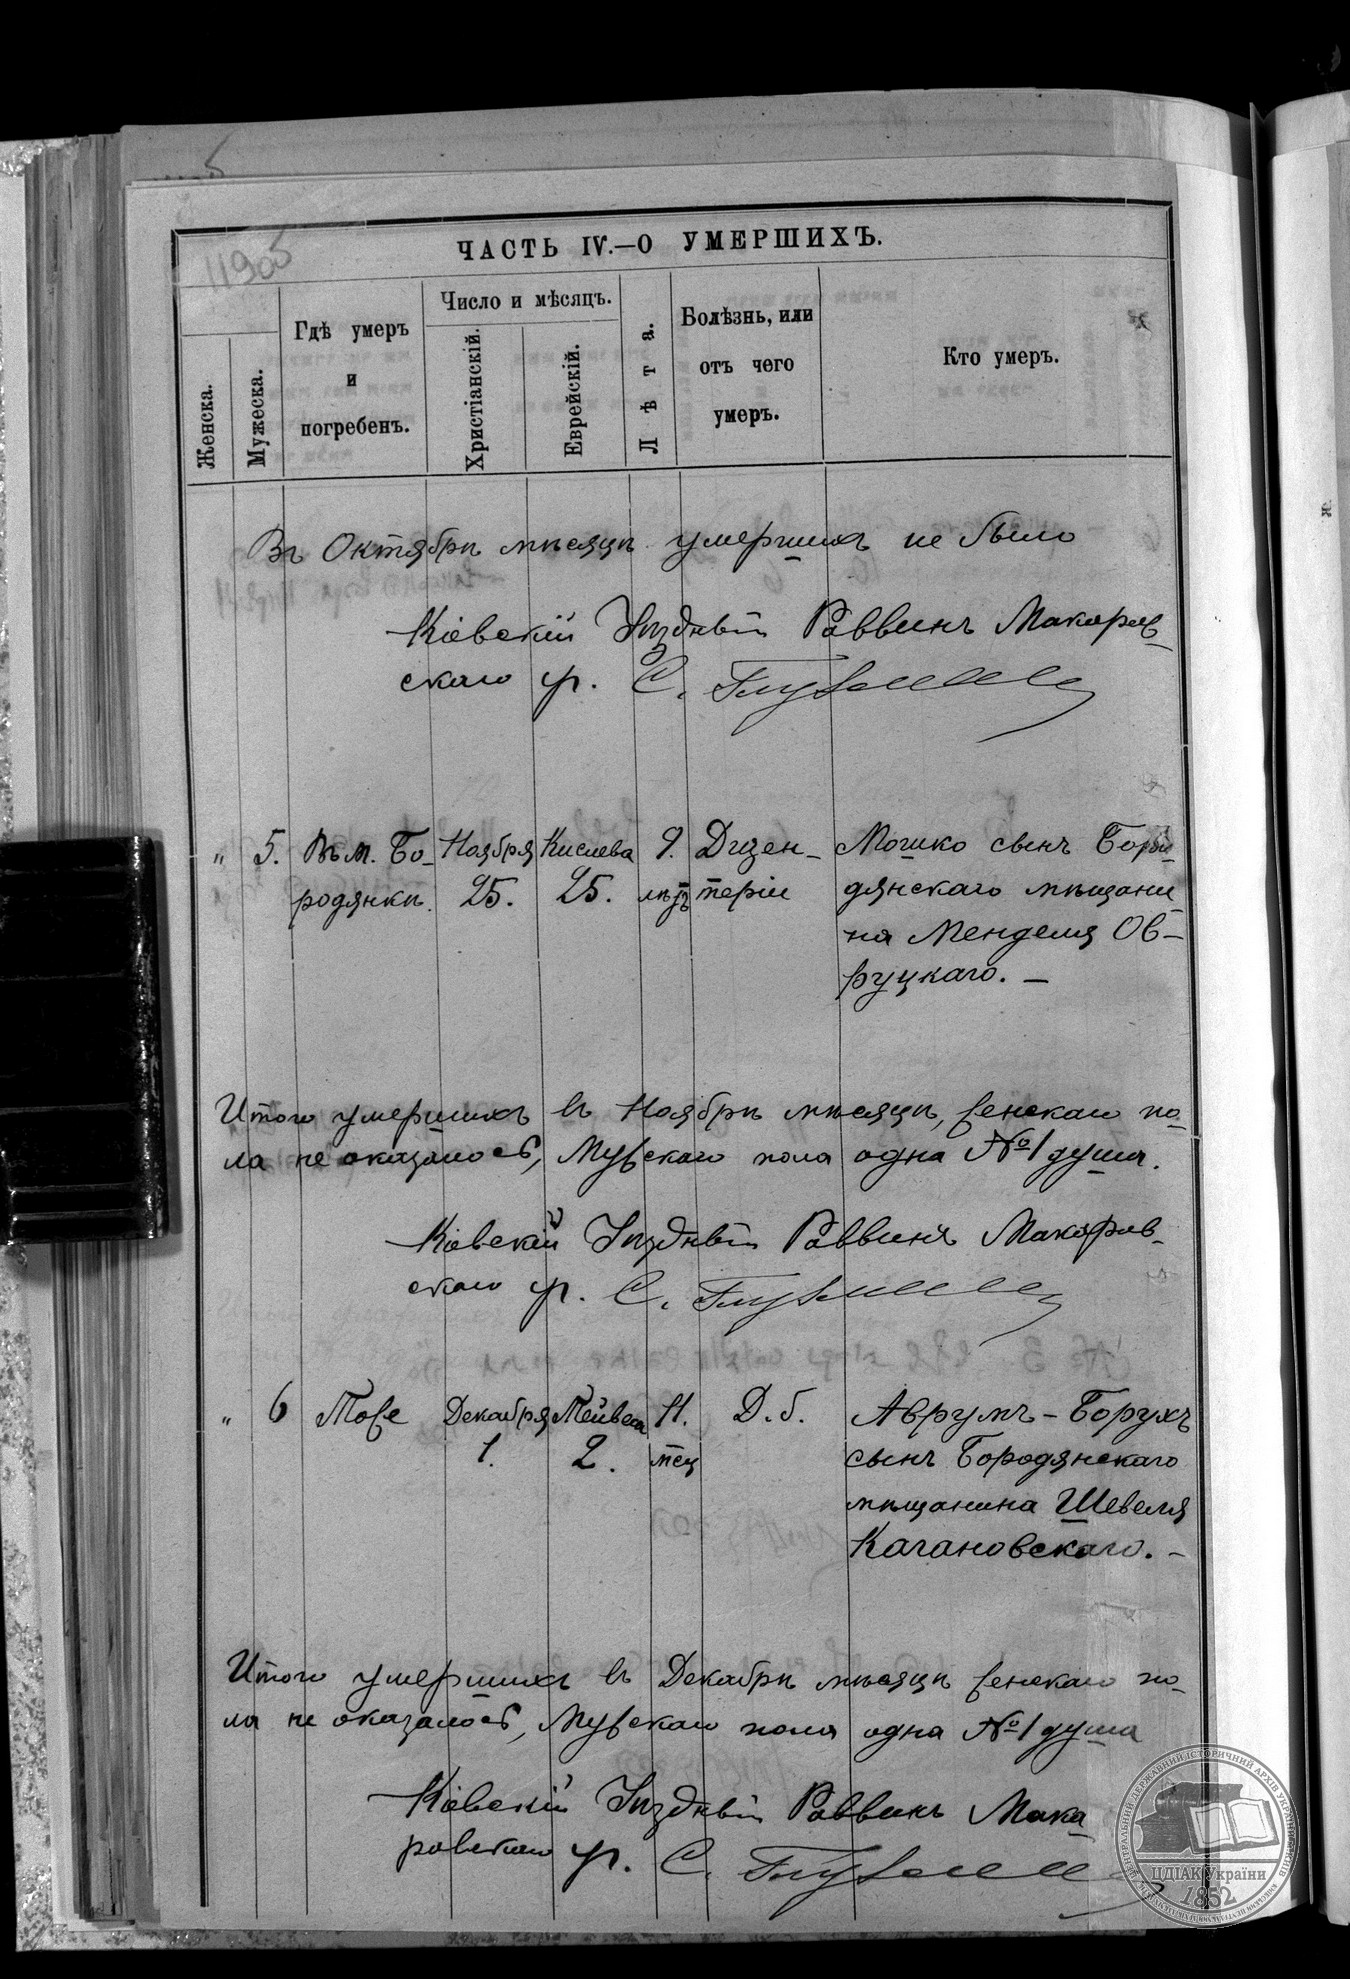 ЧАСТЬ IV.—О УМЕРШИХЪ.
Женска.
Мужеска.
Гдѣ умеръ
и
погребенъ.
Число и мѣсяцъ.
Христіанскій.
Еврейскій.
Лѣта.
Болѣзнь, или
отъ чего
умеръ.
Кто умеръ.
Въ Октябрѣ мѣсяцѣ умершихъ не было
Кіевскій Уѣздный Раввинъ Макаров-
скаго уч. С.
„ 5. Въ м. Бо- Ноября Кислева 9. Дизен- Мошко сынъ Боро-
родянкѣ. 25. 25. лѣтъ теріи дянскаго мѣщани
на Менделя Ов-
руцкаго. —
Итого умершихъ въ Ноябрѣ мѣсяцѣ, женскаго по-
ла не оказалось, Мужскаго пола одна №1 душа.
Кіевскій Уѣздный Раввинъ Макаров-
скаго уч. С.
„ 6 Тоже Декабря Тейвеса 11. Д. б. Аврумъ-Борухъ
1. 2. мец сынъ Бородянскаго
мѣщанина Шевеля
Кагановскаго. —
Итого умершихъ въ Декабрѣ мѣсяцѣ женскаго по-
ла не оказалось, Мужскаго пола одна №1 душа
Кіевскій Уѣздный Раввинъ Мака-
ровскаго уч. С.
ЦДІАК України
1852